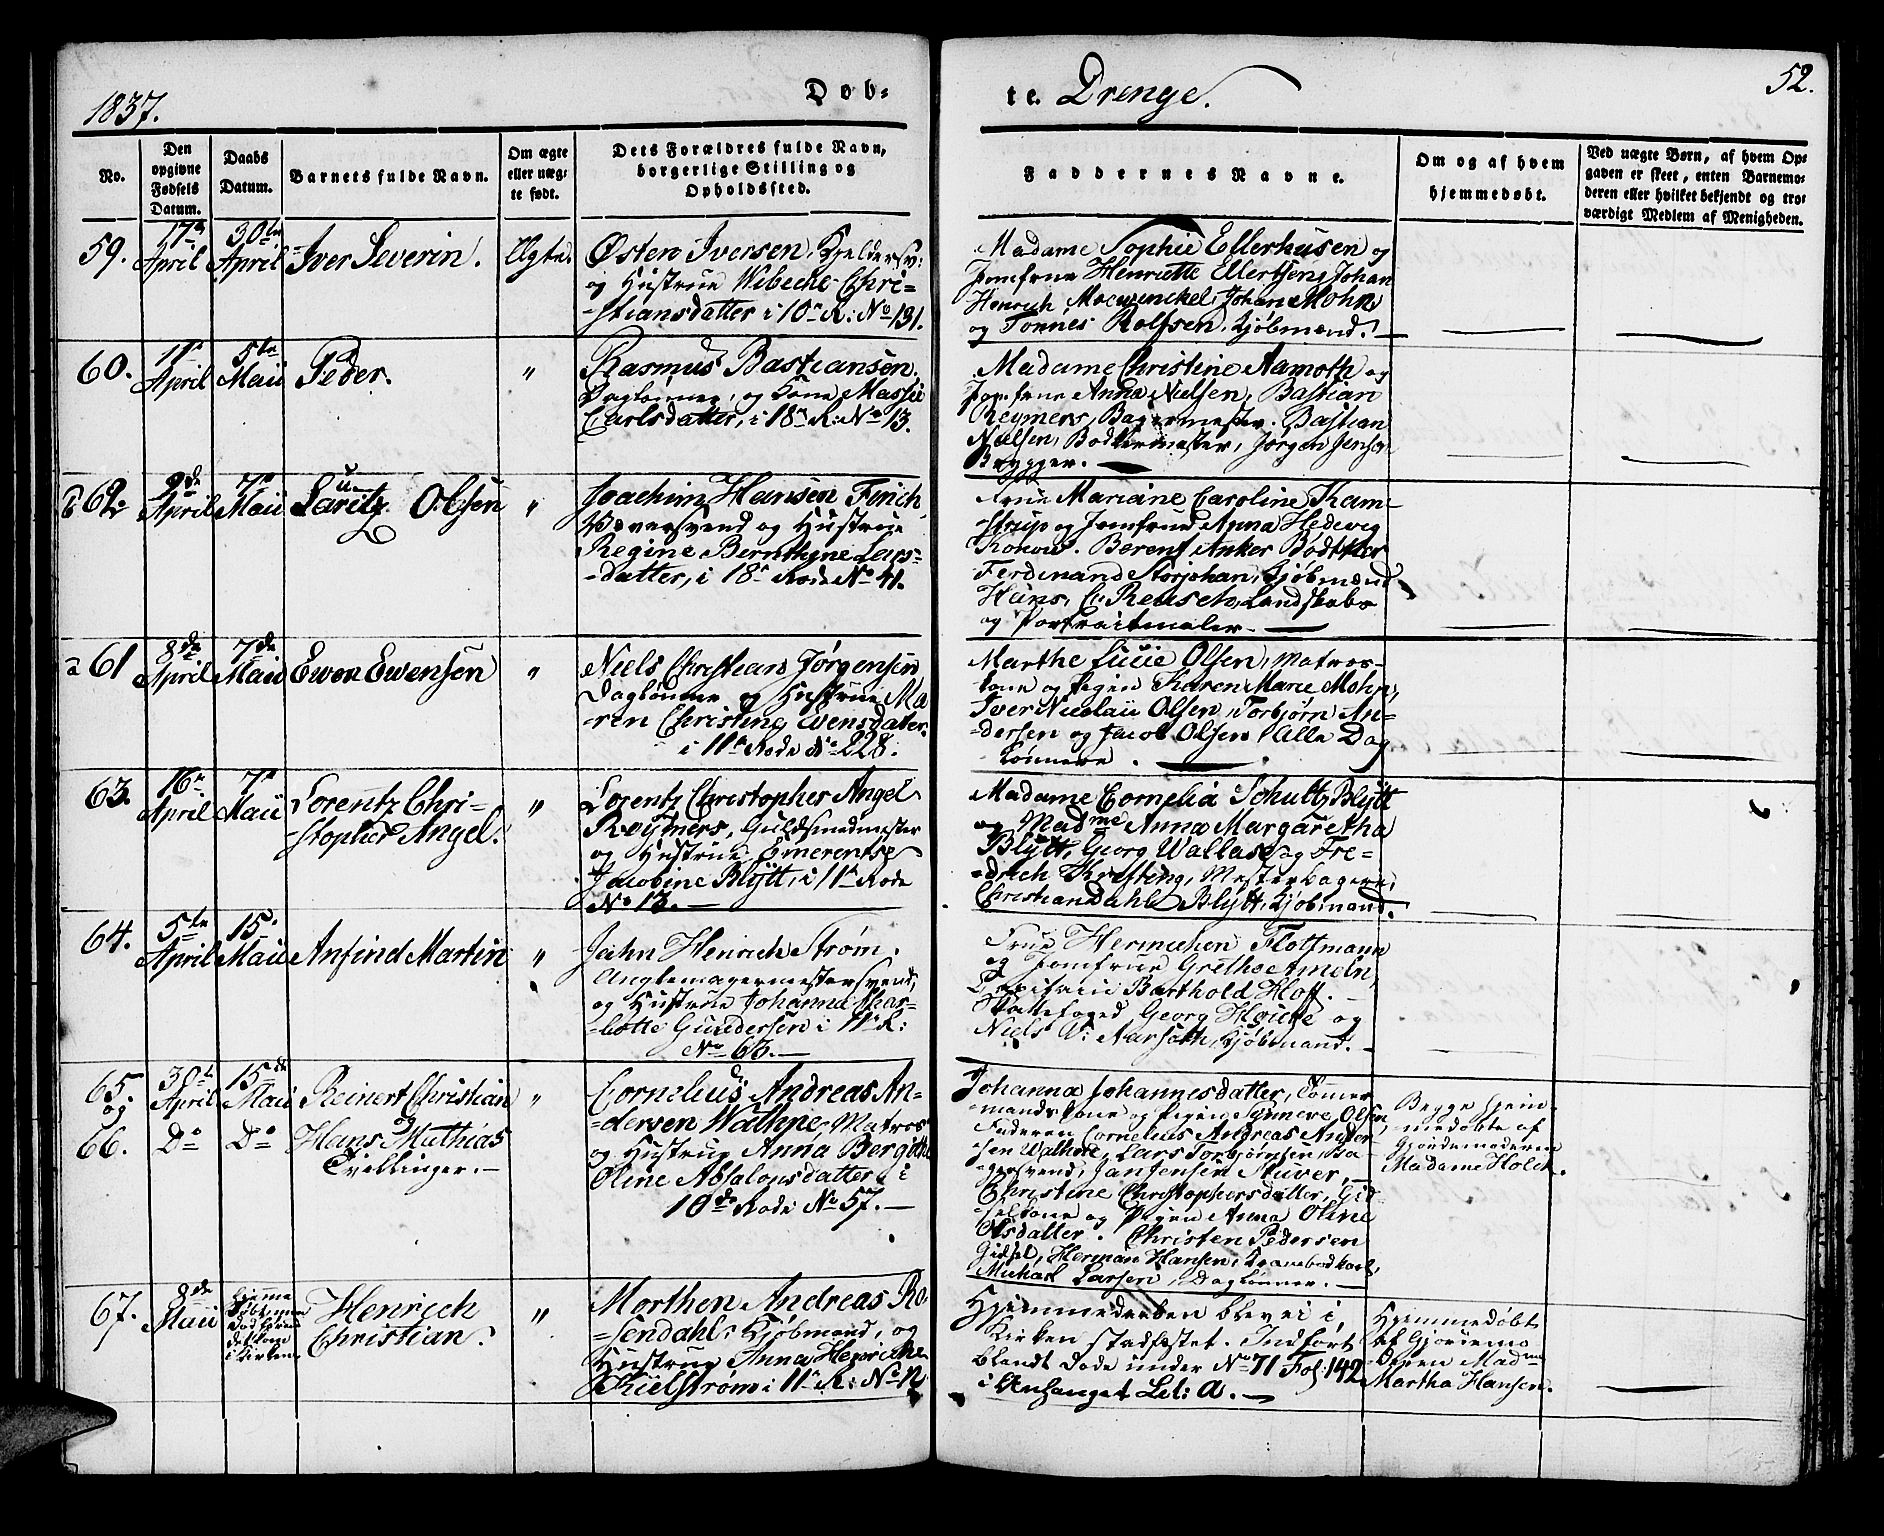 1837.
Døb=
te. Drenge.
52.
No.
Den
opgivne
Fødsels
Datum.
Daabs
Datum.
Barnets fulde Navn.
Om ægte
eller uæg=
te født.
Dets Forældres fulde Navn,
borgerlige Stilling og
Opholdssted.
Faddernes Navne.
Om og af hvem
hjemmedøbt.
Ved uægte Børn, af hvem Op=
gaven er skeet, enten Barnemo=
deren eller hvilket bekjendt og tro=
værdigt Medlem af Menigheden.
59.
17de
April
30te
April
Iver Severin.
Ægte.
Østen Iversen, Kjeldersv:
og Hustrue Wibecke Chri-
-stiansdatter i 10de R: No 131.
Madame Sophie Ellerhusen og
Jomfrue Henriette Ellertsen, Johan
Henrich Mowinckel, Johan Mohn,
og Tønnes Rolfsen, Kjøbmænd.
60.
11te
April
5te
Maii
Peder.
"
Rasmus Bastiansen.
Daglønner, og Kone Massie
Carlsdatter, i 18de R: No 13.
Madame Christine Aamoth og
Jomfrue Anna Nielsen, Bastian
Reymers, Bagermester. Bastian
Nielsen, Bødkermester, Jørgen Jensen
Brygger.
b 62
9de
April
7de
Maii
Lauritz Olsen
"
Joachim Hansen Frich,
Væversvend og Hustrue
Regine Bernthine Lars-
-datter, i 18de Rode No 41.
Frue Mariane Caroline Kam-
-strup og Jomfrue Anna Hedevig
Konow. Berent Anker Bødtker
Ferdinand Storjohan, Kjøbmænd
Hans, C: Reusch, Landskabs
og Portraitmaler.
a 61
8de
April
7de
Maii
Ewen Ewensen
"
Niels Christian Jørgensen
Daglønner og Hustrue Ma
ren Christine Evensdatter
i 11te Rode No 228.
Marthe Lucie Olsen, Matros-
kone og Pigen Karen Marie Mohn,
Iver Nicolaii Olsen, Torbjørn An-
-dersen og Jacob Olsen Alle Dag
lønnere.
63.
16de
April
7de
Maii
Lorentz Chri-
-stopher Angel.
"
Lorentz Christopher Angel
Reymers, Guldsmedmester
og Hustrue Emerentse
Jacobine Blytt, i 11te Rode
No 13.
Madame Cornelia Schultz Blytt
og Madme Anna Margaretha
Blytt, Georg Wallase og Fre-
-drich Kristing, Mesterbagere,
Christian Dahl Blytt, Kjøbmand.
64.
5te
April
15de
Maii
Anfind Martin
"
Jahn Henrich Strøm,
Anglemagermestersvend,
og Hustrue Johanna Char-
-lotte Gundersen i 11te R:
No 63.
Frue Hermichen Flottmann
og Jomfrue Grethe Ameln,
Barthold Hoff.
Fattefoged Georg Hgicke og
Niels W: Aarsoth, Kjøbmand.
65.
og
66.
30te
April
Do
15de
Maii
Do
Reinert Christian
Hans Mathias
Tvillinger.
"
Cornelius Andreas An-
-dersen Wathne, Matros
og Hustrue Anna Bergithe
Oline Absalonsdatter i
10de Rode No 57.
Johanna Johannesdatter, Tømmer
mandskone og Pigen Synneve Olsen,
Faderen Cornelius Andreas Ander-
-sen Wathne, Lars Torbjørnsen, Ba-
gersvend, Jan Jensen Stuver,
Christine Christophersdatter, Gid-
-selkone og Pigen Anna Oline
Olsdatter. Christen Pedersen
Gidsel, Herman Hansen, Kranebodkarl,
Michael Larsen, Daglønner.
Begge hjem-
-medøbte af
Gjordemoderen
Madame Holch.
67.
8de
Maii
Hjemme
døbt, men
død førend
det kom
i Kirken
Henrich
Christian.
"
Morthen Andreas Ro-
-sendahl, Kjøbmand, og
Hustrue Anna Henricke
Kielstrøm i 11te R: No 12
Hjemmedaaben blev ei i
Kirken stadfæstet. Indført
blandt døde under No 71 Fol: 142
i Anhanget Lit: A.
Hjemmedøbt
af Gjordemo
deren Madme
Martha Hansen.